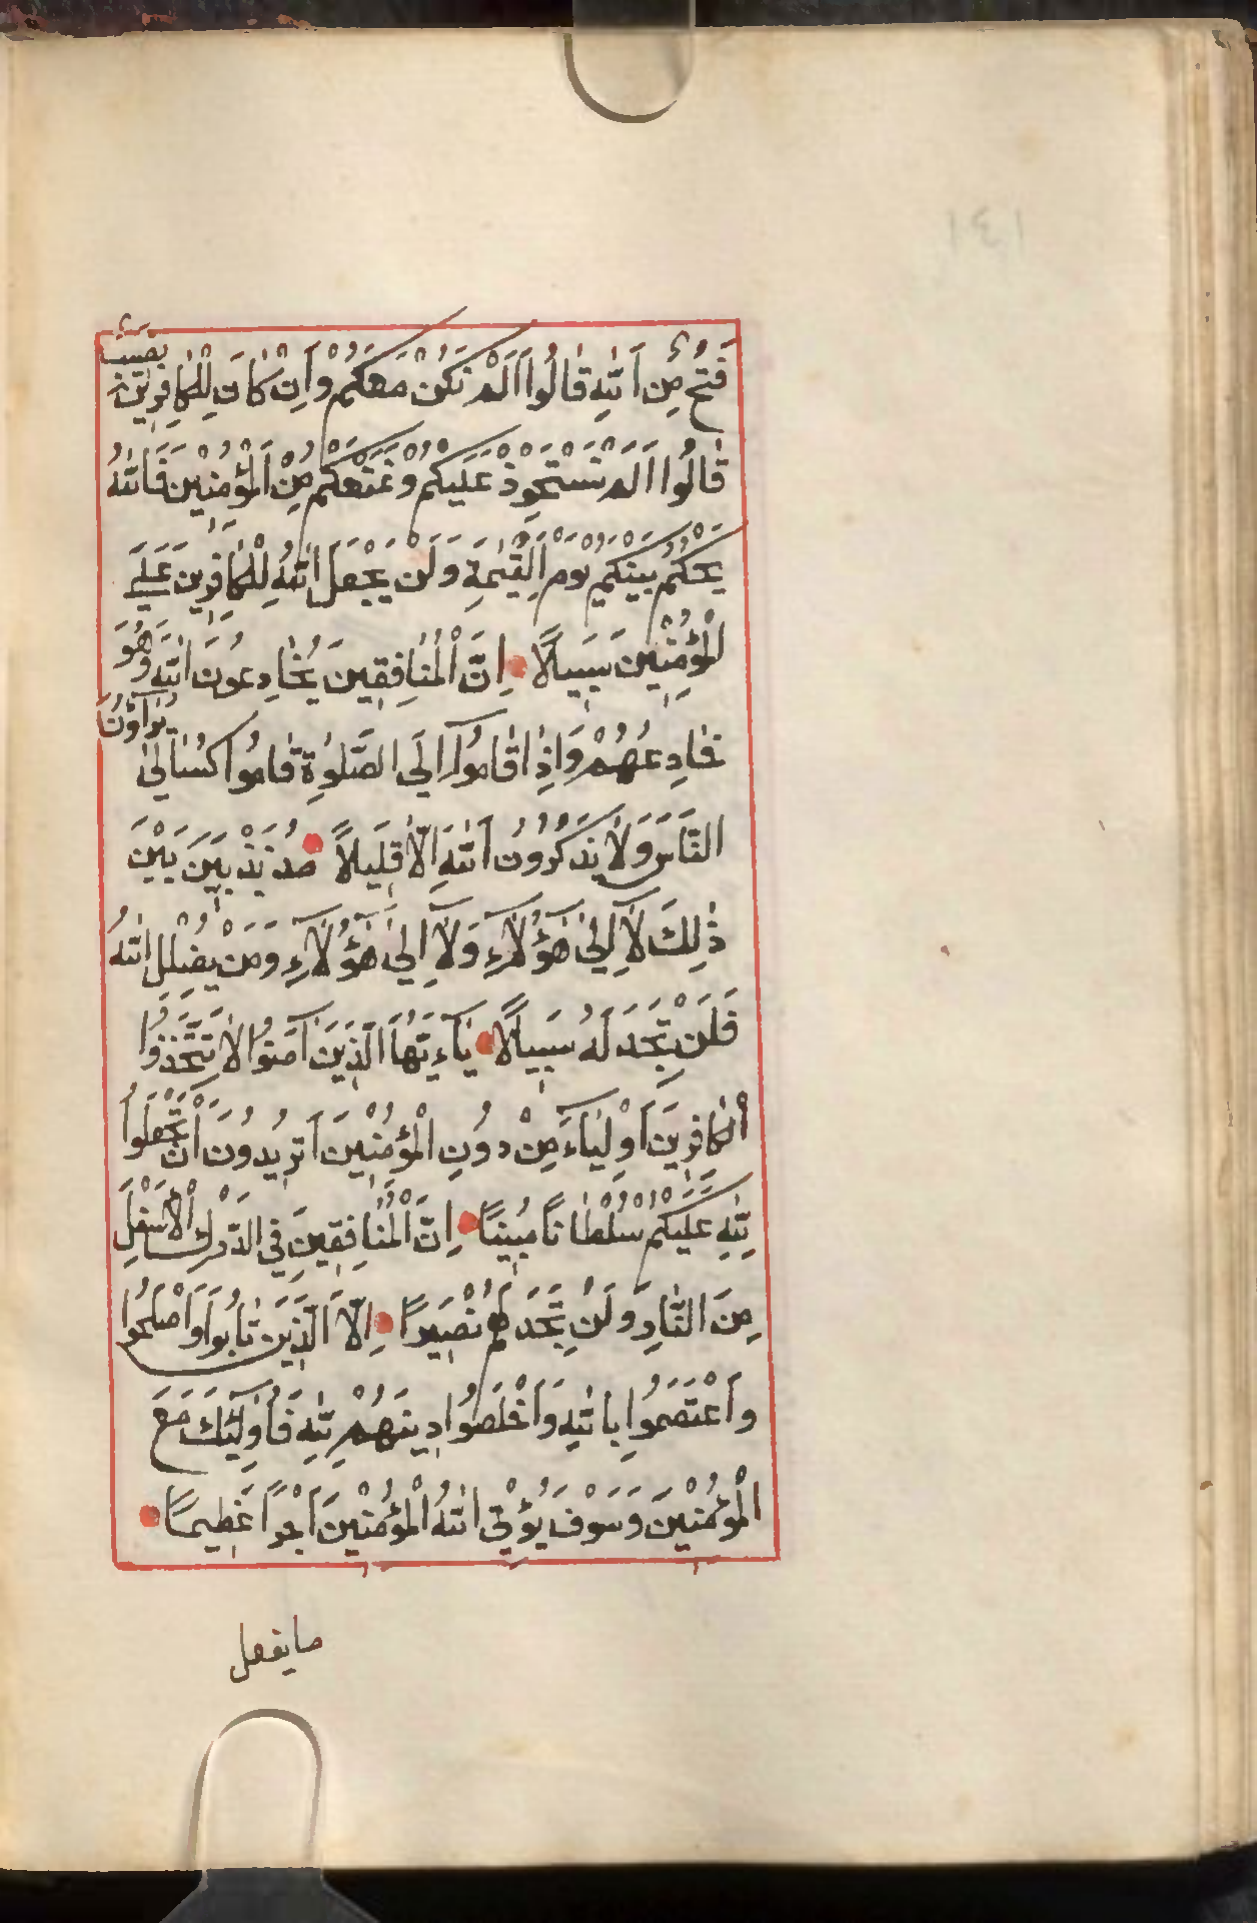 فَتْحٌ مِنَ اَللّٰهِ قَالُوا اَلَمْ نَكُنْ مَعَكُمْ وَاِنْ كَانَ لِلْكَافِرِينَ نَصِيبٌ
قَالُوا اَلَمْ نَسْتَحْوِذْ عَلَيْكُمْ وَنَمْنَعْكُمْ مِنَ اَلْمُؤْمِنِينَ فَاللّٰهُ
يَحْكُمُ بَيْنَكُمْ يَوْمَ اَلْقِيٰمَةِ وَلَنْ يَجْعَلَ اللّٰهُ لِلْكَافِرِينَ عَلَى
اَلْمُؤْمِنِينَ سَبِيلًا اِنَّ اَلْمُنَافِقِينَ يُخَادِعُونَ اللّٰهَ وَهُوَ
خَادِعُهُمْ وَاِذَا قَامُوا اِلَى الصَّلٰوةِ قَامُوا كُسَالٰى يُرَاؤُنَ
النَّاسَ وَلَا يَذْكُرُونَ اَللّٰهَ اِلَّا قَلِيلًا مُذَبْذَبِينَ بَيْنَ
ذٰلِكَ لَا اِلٰى هٰؤُلَاءِ وَلَا اِلٰى هٰؤُلَاءِ وَمَنْ يُضْلِلِ اللّٰهُ
فَلَنْ تَجِدَ لَهُ سَبِيلًا يَآءَيُّهَا الَّذِينَ آمَنُوا لَا تَتَّخِذُوا
اَلْكَافِرِينَ اَوْلِيَاءَ مِنْ دُونِ الْمُؤْمِنِينَ اَتُرِيدُونَ اَنْ تَجْعَلُوا
لِلّٰهِ عَلَيْكُمْ سُلْطَانًا مُبِينًا اِنَّ اَلْمُنَافِقِينَ فِي الدَّرْكِ اَلْاَسْفَلِ
مِنَ النَّارِ وَلَنْ تَجِدَ لَهُمْ نَصِيرًا اِلَّا الَّذِينَ تَابُوا وَاَصْلَحُوا
وَاَعْتَصَمُوا بِاللّٰهِ وَاَخْلَصُوا دِينَهُمْ لِلّٰهِ فَاُولٰئِكَ مَعَ
الْمُؤْمِنِينَ وَسَوْفَ يُؤْتِ اللّٰهُ الْمُؤْمِنِينَ اَجْرًا عَظِيمًا
ما يفعل